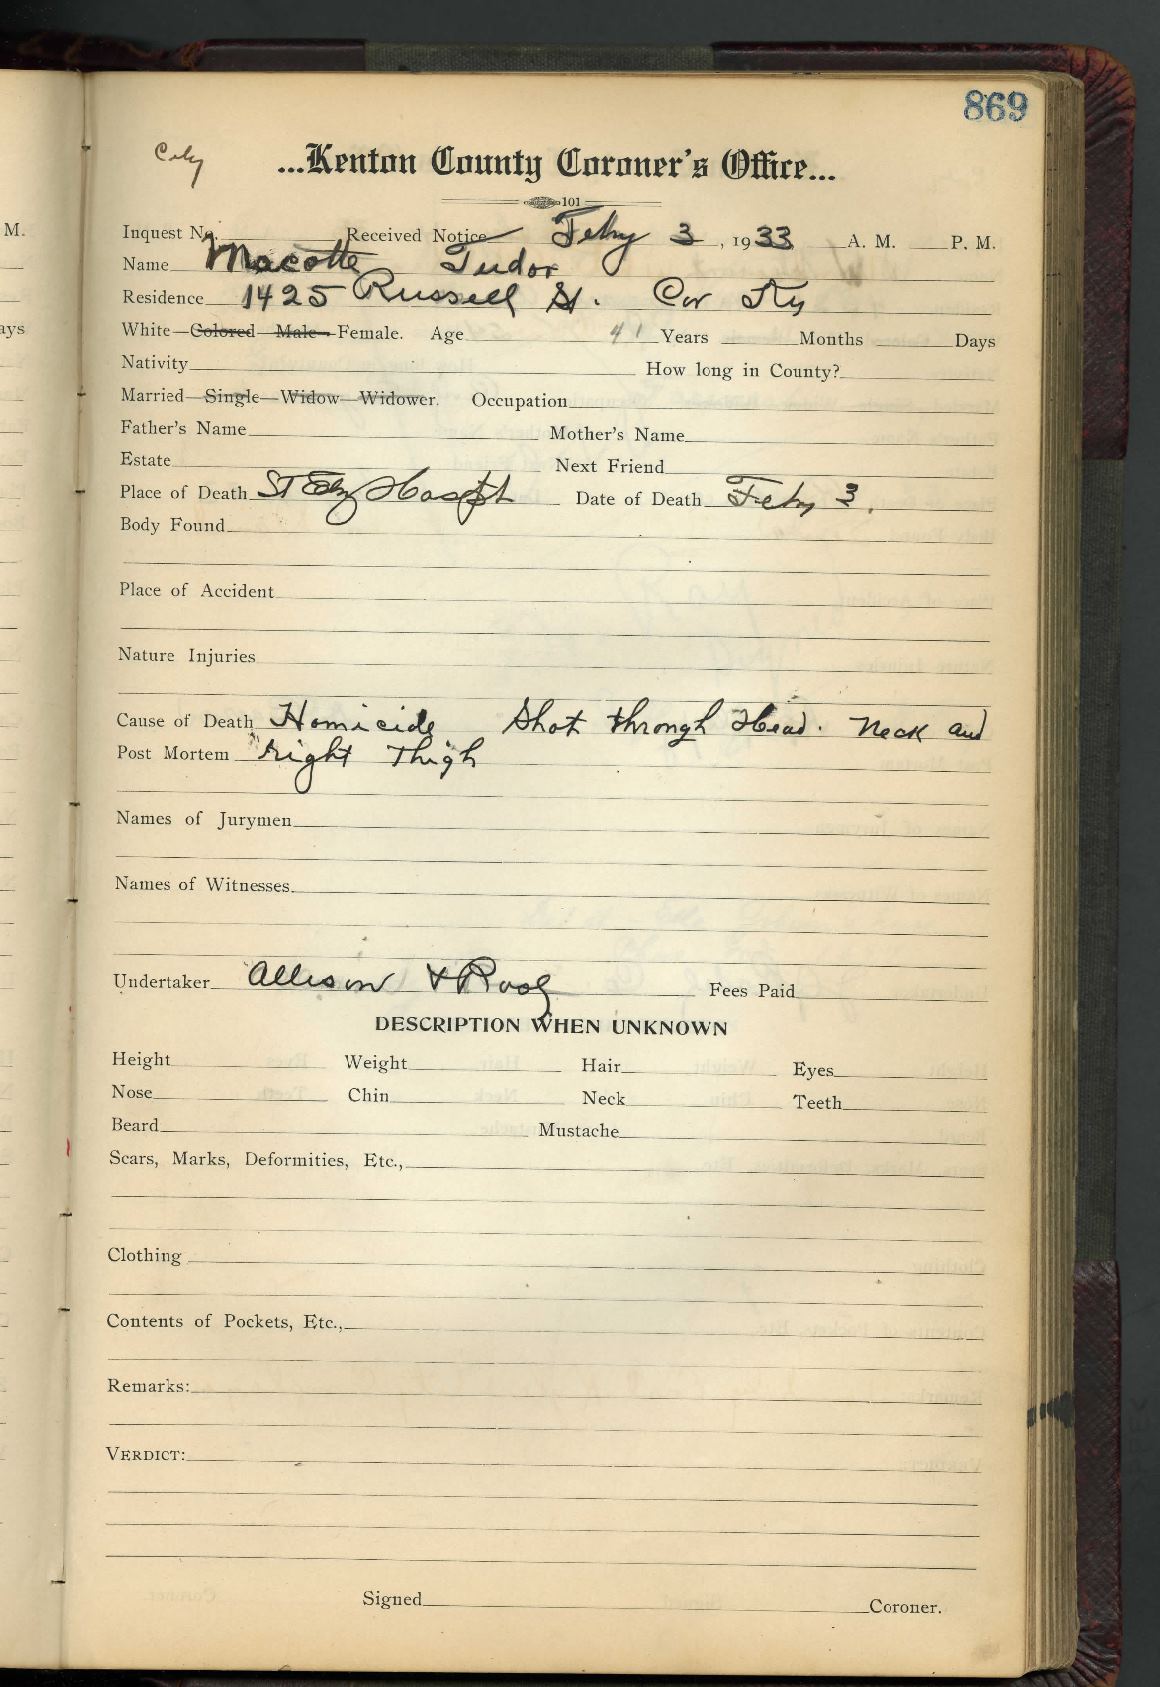 869
City
...Kenton County Coroner's Office...
101
Inquest No. Received Notice Feby 3, 1933 A. M. P. M.
Name Macotte Tudor
Residence 1425 Russell St. Cov Ky
White—Colored—Male—Female. Age 41 Years Months Days
Nativity How long in County?
Married—Single—Widow—Widower. Occupation
Father's Name Mother's Name
Estate Next Friend
Place of Death St Eliz Hospt Date of Death Feby 3.
Body Found
Place of Accident
Nature Injuries
Cause of Death Homicide Shot through Head. Neck and
Post Mortem right Thigh
Names of Jurymen
Names of Witnesses
Undertaker Allison & Rose Fees Paid
DESCRIPTION WHEN UNKNOWN
Height Weight Hair Eyes
Nose Chin Neck Teeth
Beard Mustache
Scars, Marks, Deformities, Etc.,
Clothing
Contents of Pockets, Etc.,
Remarks:
VERDICT:
Signed Coroner.
M.
ays